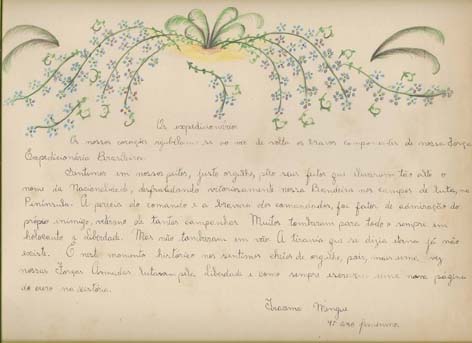 Os expedicionários
Os nossos corações rejubilam-se ao ver de volta os bravos componentes de nossa Força
Expedicionária Brasileira.
Sentimos em nossos peitos, justo orgulho, pelos seus feitos que elevaram tão alto o
nome da Nacionalidade, desfraldando vitoriosamente nossa Bandeira nos campos de luta, na
Península. A pericia do comando e a bravura dos comandados, foi fator de admiração do
próprio inimigo, veterano de tantas campanhas. Muitos tombaram para todo o sempre em
holocausto a liberdade. Mas não tombaram em vão. A tirania que se dizia eterna já não
existe. E neste momento histórico nos sentimos cheios de orgulho, pois, mais uma vez
nossas Forças Armadas lutaram pela liberdade e como sempre escreveu uma nova página
de ouro na história.
Iracema
4º ano feminino